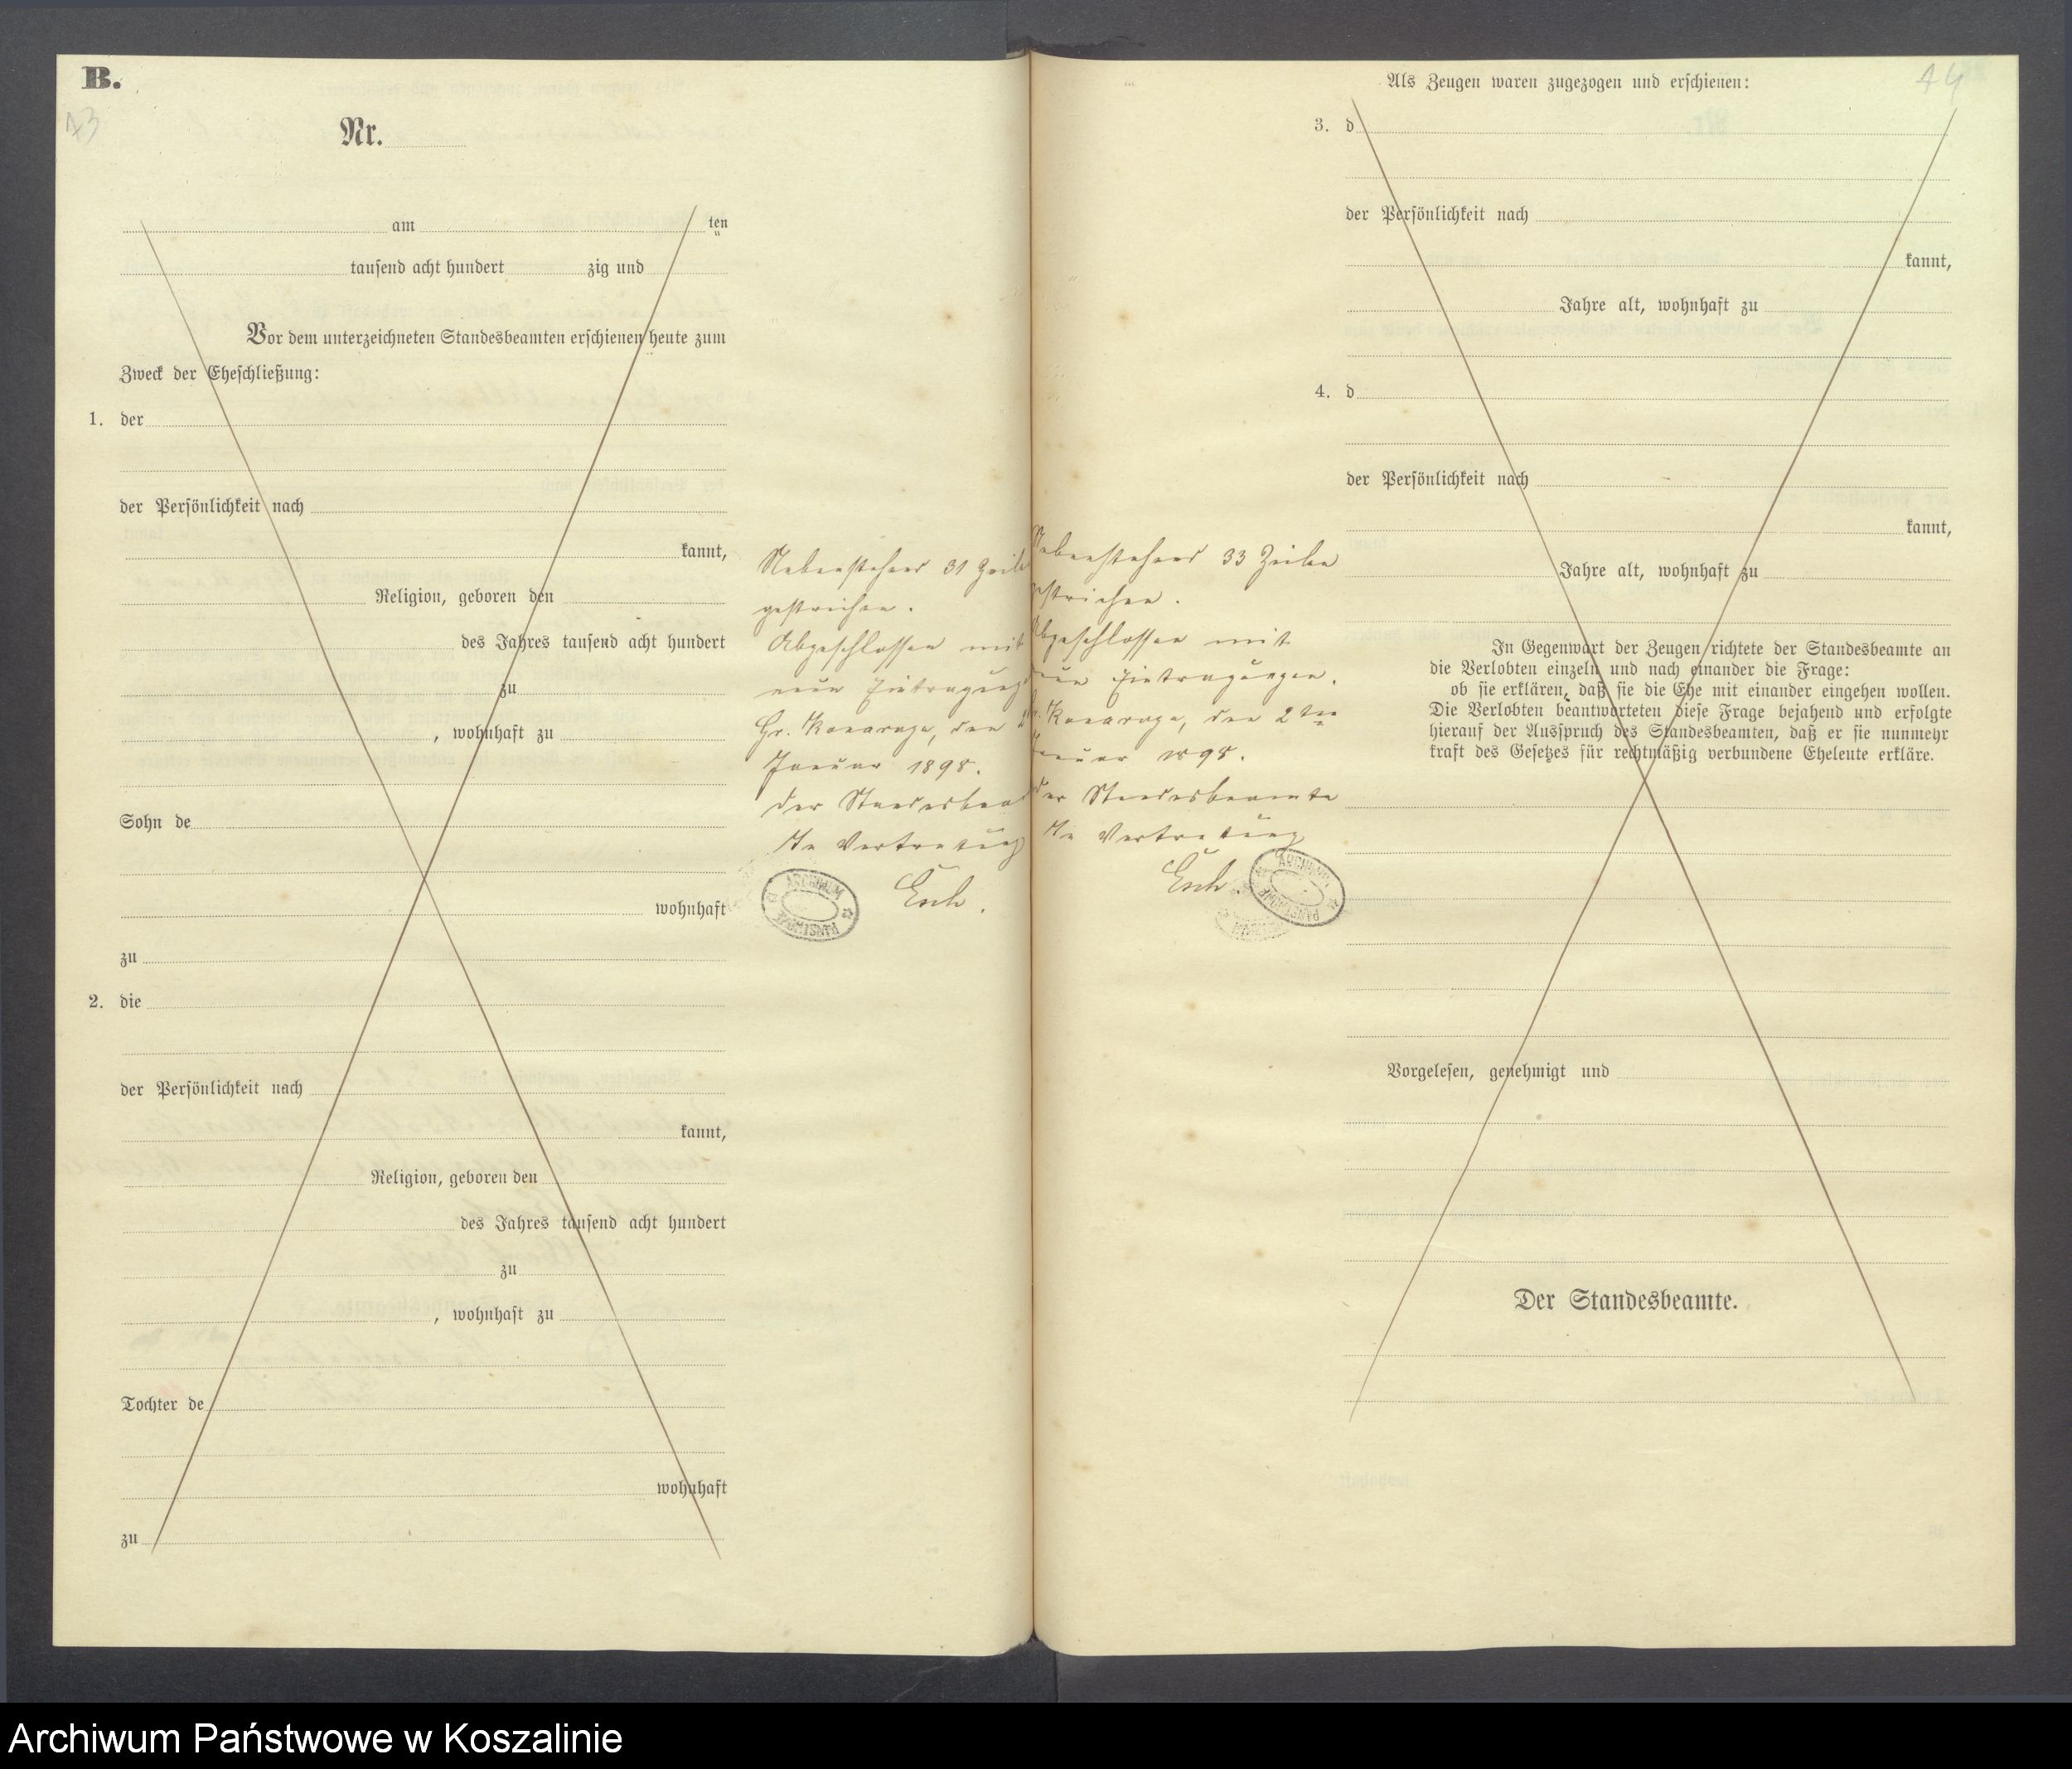 B.
13
Nr.
am ten
tausend acht hundert zig und
Vor dem unterzeichneten Standesbeamten erschienen heute zum
Zweck der Eheschließung:
1. der
der Persönlichkeit nach
kannt,
Religion, geboren den
des Jahres tausend acht hundert
zu
, wohnhaft zu
Sohn de
wohnhaft
zu
2. die
der Persönlichkeit nach
kannt,
Religion, geboren den
des Jahres tausend acht hundert
zu
, wohnhaft zu
Tochter de
wohnhaft
zu
Nebenstehend 31 Zeil
gestrichen.
Abgeschlossen mit
neun Eintragung
Gr. den 2
Januar 1895.
der Standesbea
In Vertretung
Esch.
ARCHIWUM PAŃSTWOWE
Nebenstehend 33 Zeilen
gestrichen.
Abgeschlossen mit
neun Eintragungen.
Gr. den 2ten
Januar 1895.
der Standesbeamte
In Vertretung
Esch.
ARCHIWUM PAŃSTWOWE
14
Als Zeugen waren zugezogen und erschienen:
3. d
der Persönlichkeit nach
kannt,
Jahre alt, wohnhaft zu
4. d
der Persönlichkeit nach
kannt,
Jahre alt, wohnhaft zu
In Gegenwart der Zeugen richtete der Standesbeamte an
die Verlobten einzeln und nach einander die Frage:
ob sie erklären, daß sie die Ehe mit einander eingehen wollen.
Die Verlobten beantworteten diese Frage bejahend und erfolgte
hierauf der Ausspruch des Standesbeamten, daß er sie nunmehr
kraft des Gesetzes für rechtmäßig verbundene Eheleute erkläre.
Vorgelesen, genehmigt und
Der Standesbeamte.
Archiwum Państwowe w Koszalinie